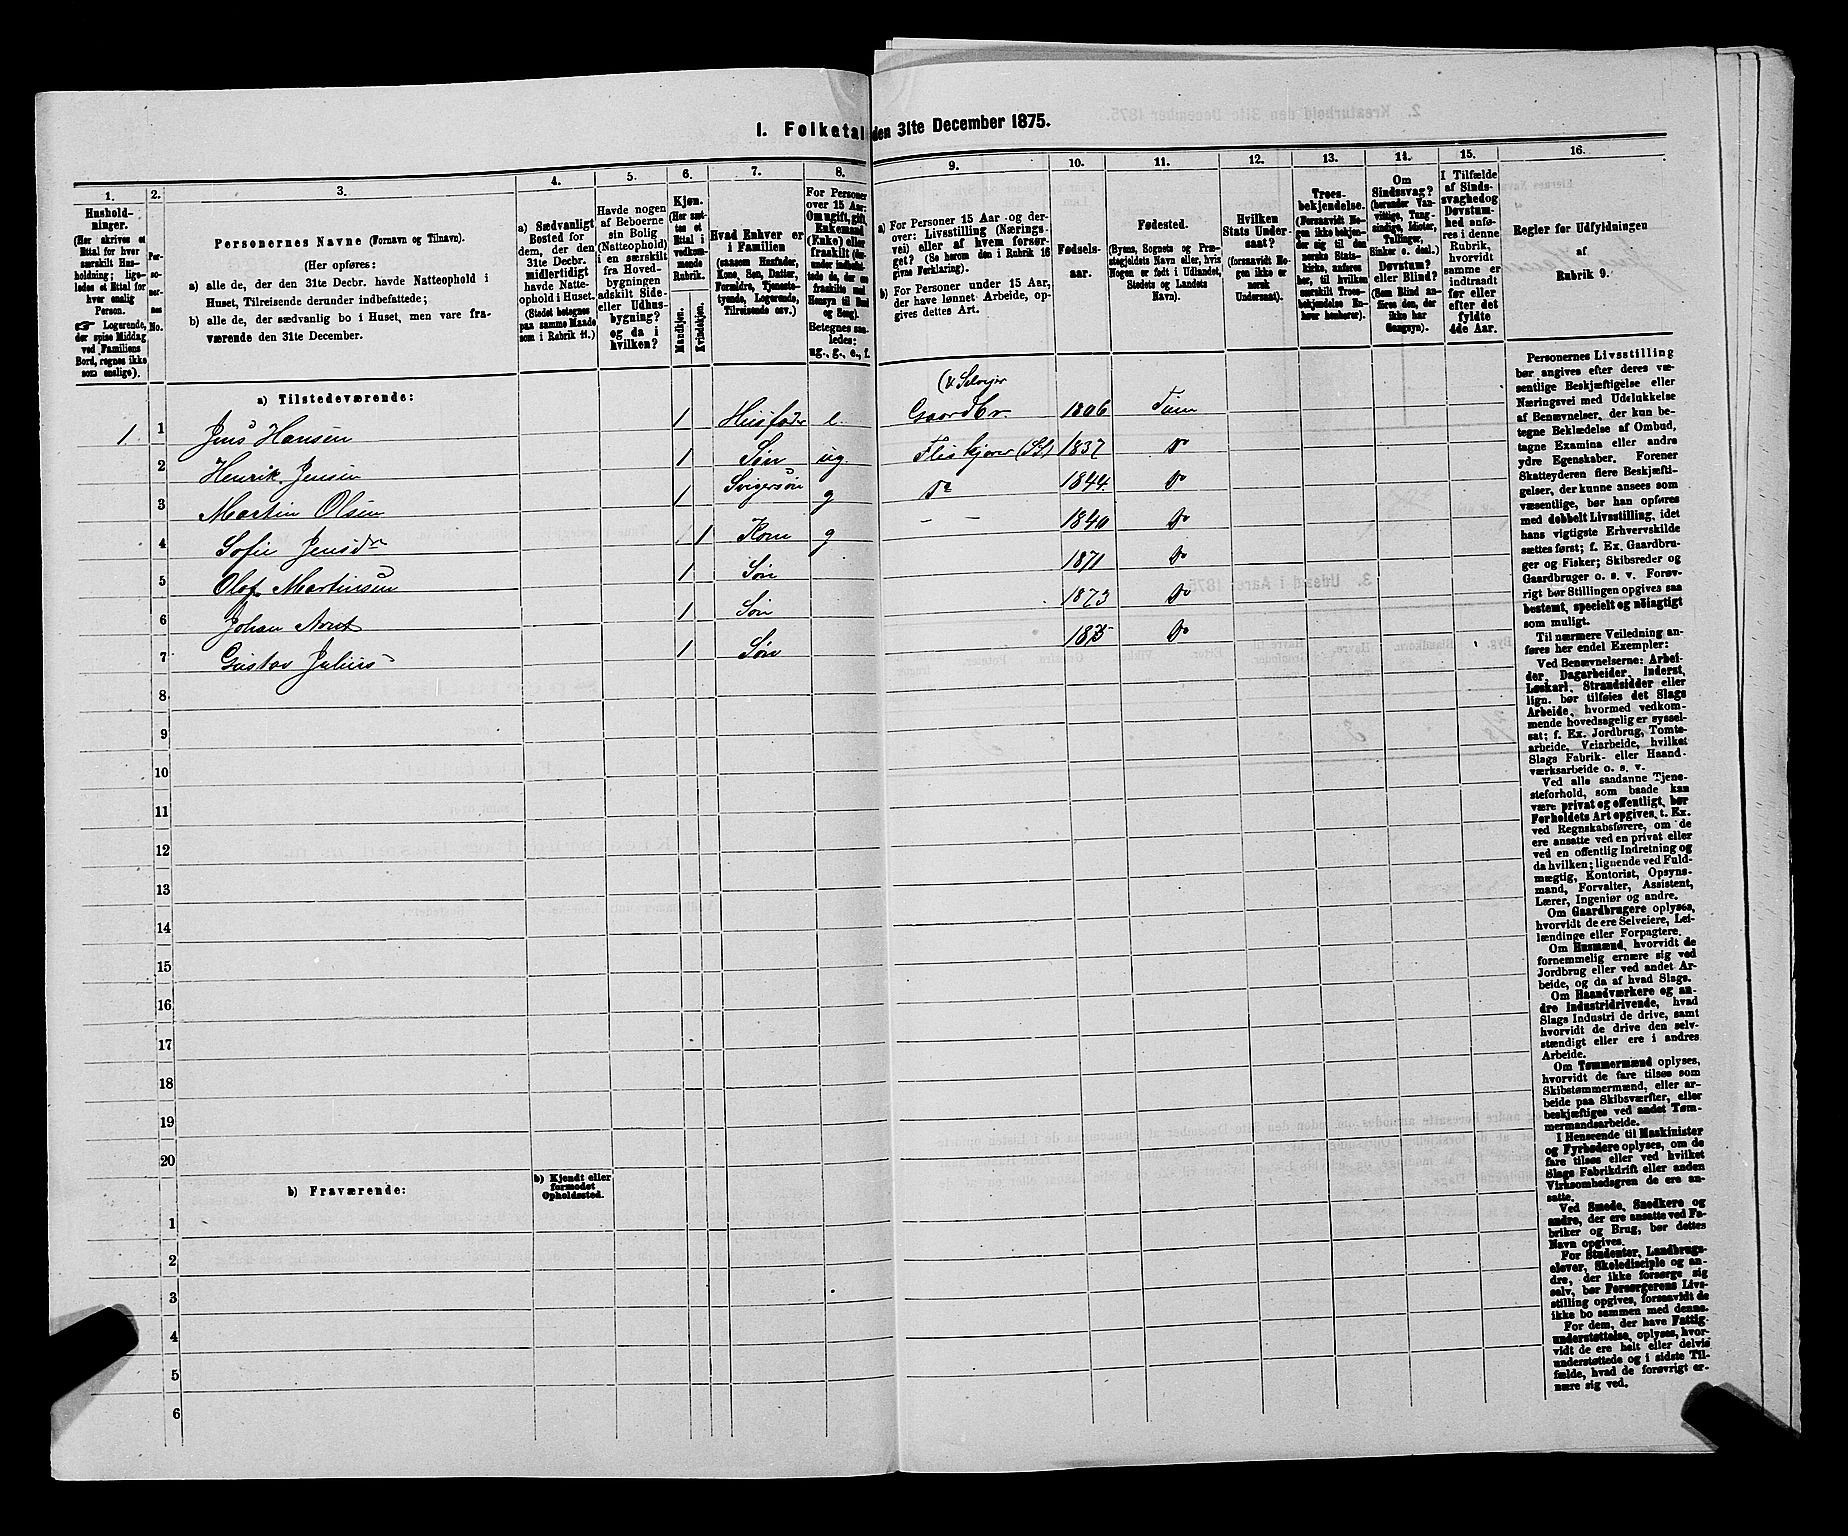 I. Folketal den 31te December 1875.
1. 2. 3. 4. 5. 6. 7. 8. 9. 10. 11. 12. 13. 14. 15. 16.
Hushold-
ninger.
(Her skrives et
Ettal for hver
særskilt Hus-
holdning; lige-
ledes et Ettal for
hver enslig
Person.
☞ Logerende,
der spise Middag
ved Familiens
Bord, regnes ikke
som enslige).
Per-
so-
ner-
nes
No.
Personernes Navne (Fornavn og Tilnavn).
(Her opføres:
a) alle de, der den 31te Decbr. havde Natteophold i
Huset, Tilreisende derunder indbefattede;
b) alle de, der sædvanlig bo i Huset, men vare fra-
værende den 31te December.
a) Sædvanligt
Bosted for
dem, der den
31te Decbr.
midlertidigt
havde Natte-
ophold i Huset.
(Stedet betegnes
paa samme Maade
som i Rubrik 11.)
Havde nogen
af Beboerne
sin Bolig
(Natteophold)
i en særskilt
fra Hoved-
bygningen
adskilt Side-
eller Udhus-
bygning?
og da i
hvilken?
Kjøn.
(Her sæt-
tes et
Ettal i
vedkom-
mende
Rubrik.
Mandkjøn.
Kvindekjøn.
Hvad Enhver er
i Familien
(saasom Husfader,
Kone, Søn, Datter,
Forældre, Tjeneste-
tyende, Logerende,
Tilreisende osv.)
For Personer
over 15 Aar:
Om ugift, gift,
Enkemand
(Enke) eller
fraskilt
Betegnes saa-
ledes:
ug., g., e., f.
a) For Personer 15 Aar og der-
over: Livsstilling (Nærings-
vei) eller af hvem forsør-
get? (Se herom den i Rubrik 16
givne Forklaring).
b) For Personer under 15 Aar,
der have lønnet Arbeide, op-
gives dettes Art.
Fødsels-
aar.
Fødested.
(Byens, Sognets og Præ-
stegjeldets Navn eller, hvis
Nogen er født i Udlandet,
Stedets og Landets
Navn).
Hvilken
Stats Under-
saat?
(forsaavidt No-
gen ikke er
norsk
Undersaat).
Troes-
bekjendelse.
(Forsaavidt No-
gen ikke bekjen-
der sig til den
norske Stats-
kirke, anføres
her, til hvilken
særskilt Troes-
bekjendelse En-
hver henhører).
Om
Sindssvag?
(herunder Van-
vittige, Tung-
sindige, Idioter,
Tullinger,
Sinker o. desl.)
Døvstum?
eller Blind?
(Som Blind an-
føres den, der
ikke har
Gangsyn).
I Tilfælde
af Sinds-
svaghed og
Døvstum-
hed anfø-
res i denne
Rubrik,
hvorvidt
samme er
indtraadt
før eller
efter det
fyldte
4de Aar.
Regler for Udfyldningen
af
Rubrik 9.
a) Tilstedeværende:
(& Selvejer
1. 1 Jens Hansen 1 Husfader e. Gaardbr. 1806 Tune
2 Henrik Jensen 1 Søn ug. Fliskjører (St) 1837 Do
3 Martin Olsen 1 Svigersøn g Do 1844. Do
4 Sofie Jensdr 1 Kone g – – 1840 Do
5 Olaf Martinsen 1 Søn 1871 Do
6 Johan Arnt 1 Søn 1873 Do
7 Gustav Julius 1 Søn 1875 Do
8
9
10
11
12
13
14
15
16
17
18
19
20
b) Fraværende:
b) Kjendt eller
formodet
Opholdssted.
1
2
3
4
5
6
Personernes Livsstilling
bør angives efter deres væ-
sentlige Beskjæftigelse eller
Næringsvei med Udelukkelse
af Benævnelser, der kun be-
tegne Beklædelse af Ombud,
tagne Examina eller andre
ydre Egenskaber. Forener
Skatteyderen flere Beskjæfti-
gelser, der kunne ansees som
væsentlige, bør han opføres
med dobbelt Livsstilling, idet
hans vigtigste Erhvervskilde
sættes først; f. Ex. Gaardbru-
ger og Fisker; Skibsreder og
Gaardbruger o. s. v. Forøv-
rigt bør Stillingen opgives saa
bestemt, specielt og nøiagtigt
som muligt.
Til nærmere Veiledning an-
føres her endel Exempler:
Ved Benævnelserne: Arbei-
der, Dagarbeider, Inderst,
Løskarl, Strandsidder eller
lign. bør tilføies det Slags
Arbeide, hvormed vedkom-
mende hovedsagelig er syssel-
sat; f. Ex. Jordbrug, Tomte-
arbeide, Veiarbeide, hvilket
Slags Fabrik- eller Haand-
værksarbeide o. s. v.
Ved alle saadanne Tjene-
steforhold, som baade kan
være privat og offentligt, bør
Forholdets Art opgives, t. Ex.
ved Regnskabsførere, om de
ere ansatte ved en privat eller
ved en offentlig Indretning og
da hvilken; lignende ved Fuld-
mægtig, Kontorist, Opsyns-
mand, Forvalter, Assistent,
Lærer, Ingeniør og andre.
Om Gaardbrugere oplyses,
hvorvidt de ere Selveiere, Lei-
lændinge eller Forpagtere.
Om Husmænd, hvorvidt de
fornemmelig ernære sig ved
Jordbrug eller ved andet Ar-
beide, og da af hvad Slags.
Om Haandværkere og an-
dre Industridrivende, hvad
Slags Industri de drive, samt
hvorvidt de drive den selv-
stændigt eller ere i andres
Arbeide.
Om Tømmermænd oplyses,
hvorvidt de fare tilsøs som
Skibstømmermænd, eller ar-
beide paa Skibsværfter, eller
beskjæftiges ved andet Tøm-
mermandsarbeide.
I Henseende til Maskinister
og Fyrbødere oplyses, om de
fare tilsøs eller ved hvilket
Slags Fabrikdrift eller anden
Virksomhedsgren de ere an-
satte.
Ved Smede, Snedkere og
andre, der ere ansatte ved Fa-
briker og Brug, bør dettes
Navn opgives.
For Studenter, Landbrugs-
elever, Skoledisciple og an-
dre, der ikke forsørge sig
selv, bør Forsørgerens Livs-
stilling opgives, forsaavidt de
ikke bo sammen med denne.
For dem, der have Fattig-
understøttelse, oplyses, hvor-
vidt de ere helt eller delvis
understøttede og i sidste Til-
fælde, hvad de forøvrigt er-
nære sig ved.